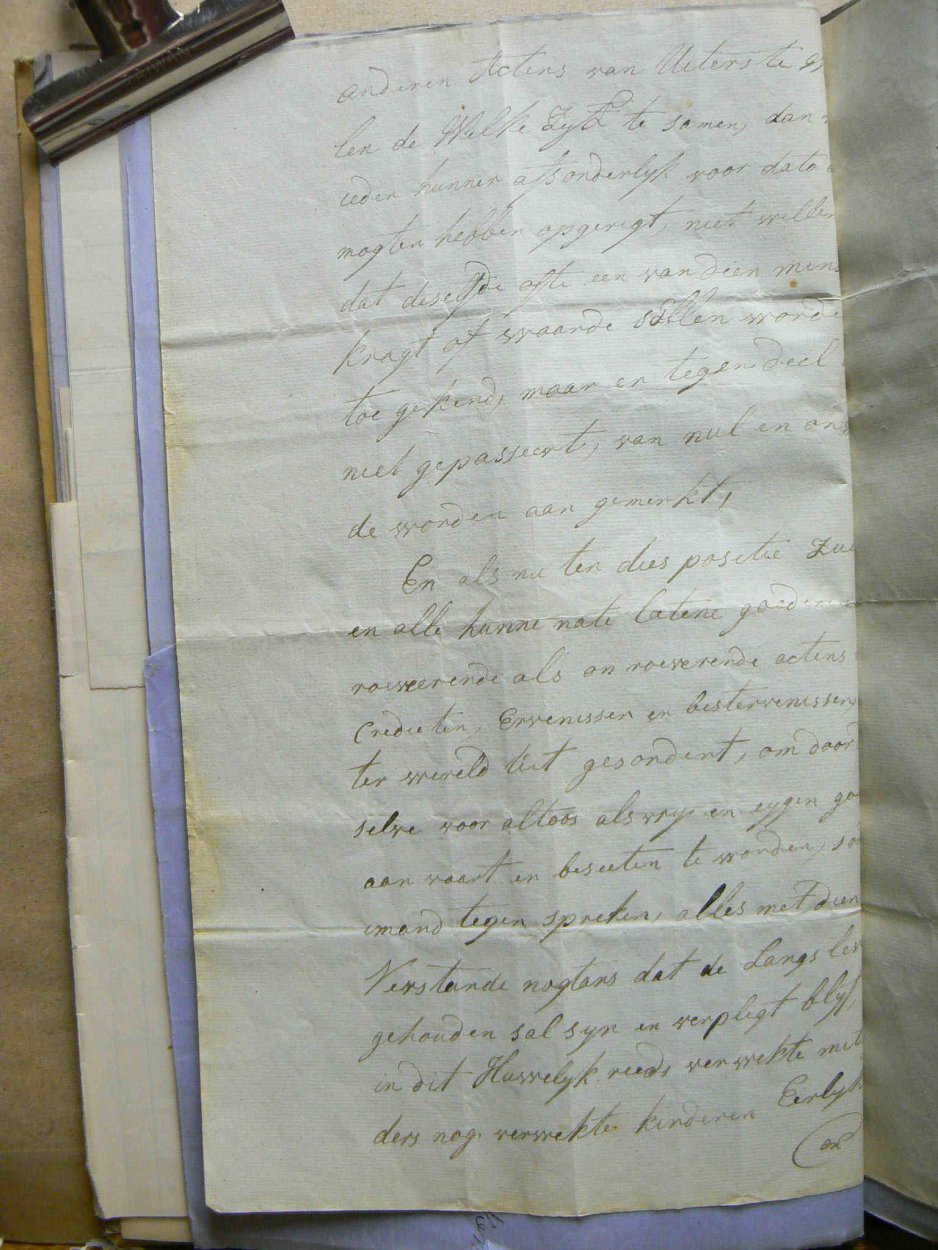 anderen Actens van Uiterste
len de Welke Zyl te samen, dan
ieder hunner afsonderlyk voor dato
mogten hebben opgeregt, niet willen
dat deselfde ofte een van deen min
kragt of waarde sullen worde
toe gekend, maar en tegendeel
niet gepasseert, van nul en on
de worden aan gemerkt,
En als nu ten dies positie
en alle hunne nate latene goederen
roeverende als on roeverende actens
Credieten, Ervenissen en bestervenissen
ter wereld Uit gesondert, om door
selve voor altoos als vry en eygen go
aan vaart en beseeten te worden, so
imand tegen spreken, alles met dien
Verstande nogtans dat de Langs lev
gehouden sal syn en verpligt blyft
in dit Huwelyk reeds verwekte
ders nog verwekte kinderen Eerlyk
en